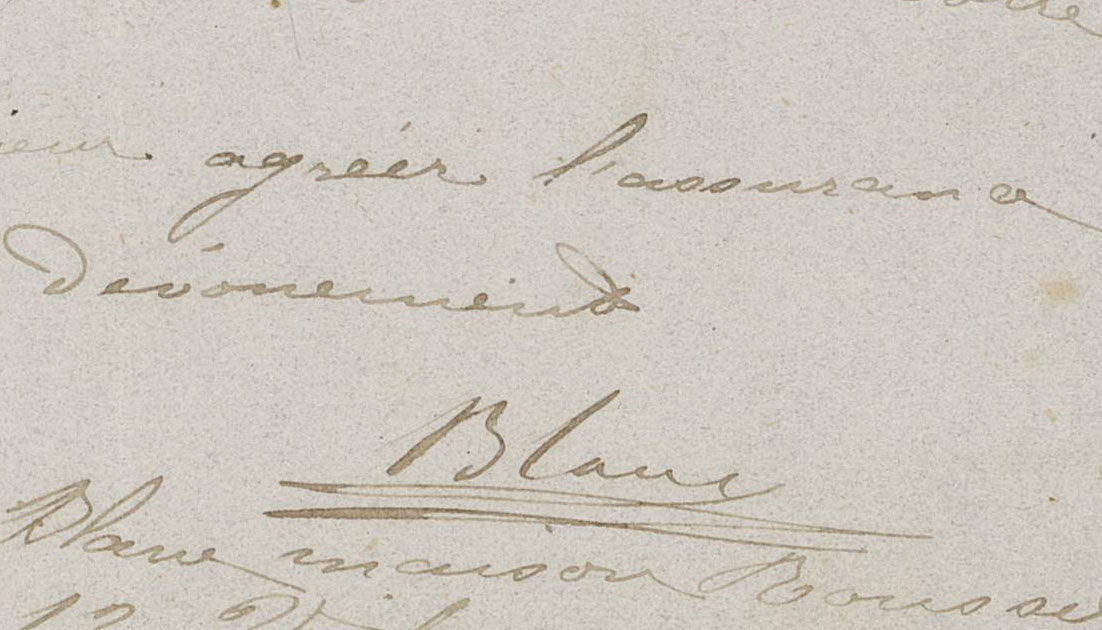 ieur agréér l'assurance
dévouement
Blanc
Blanc maison Rousse
12